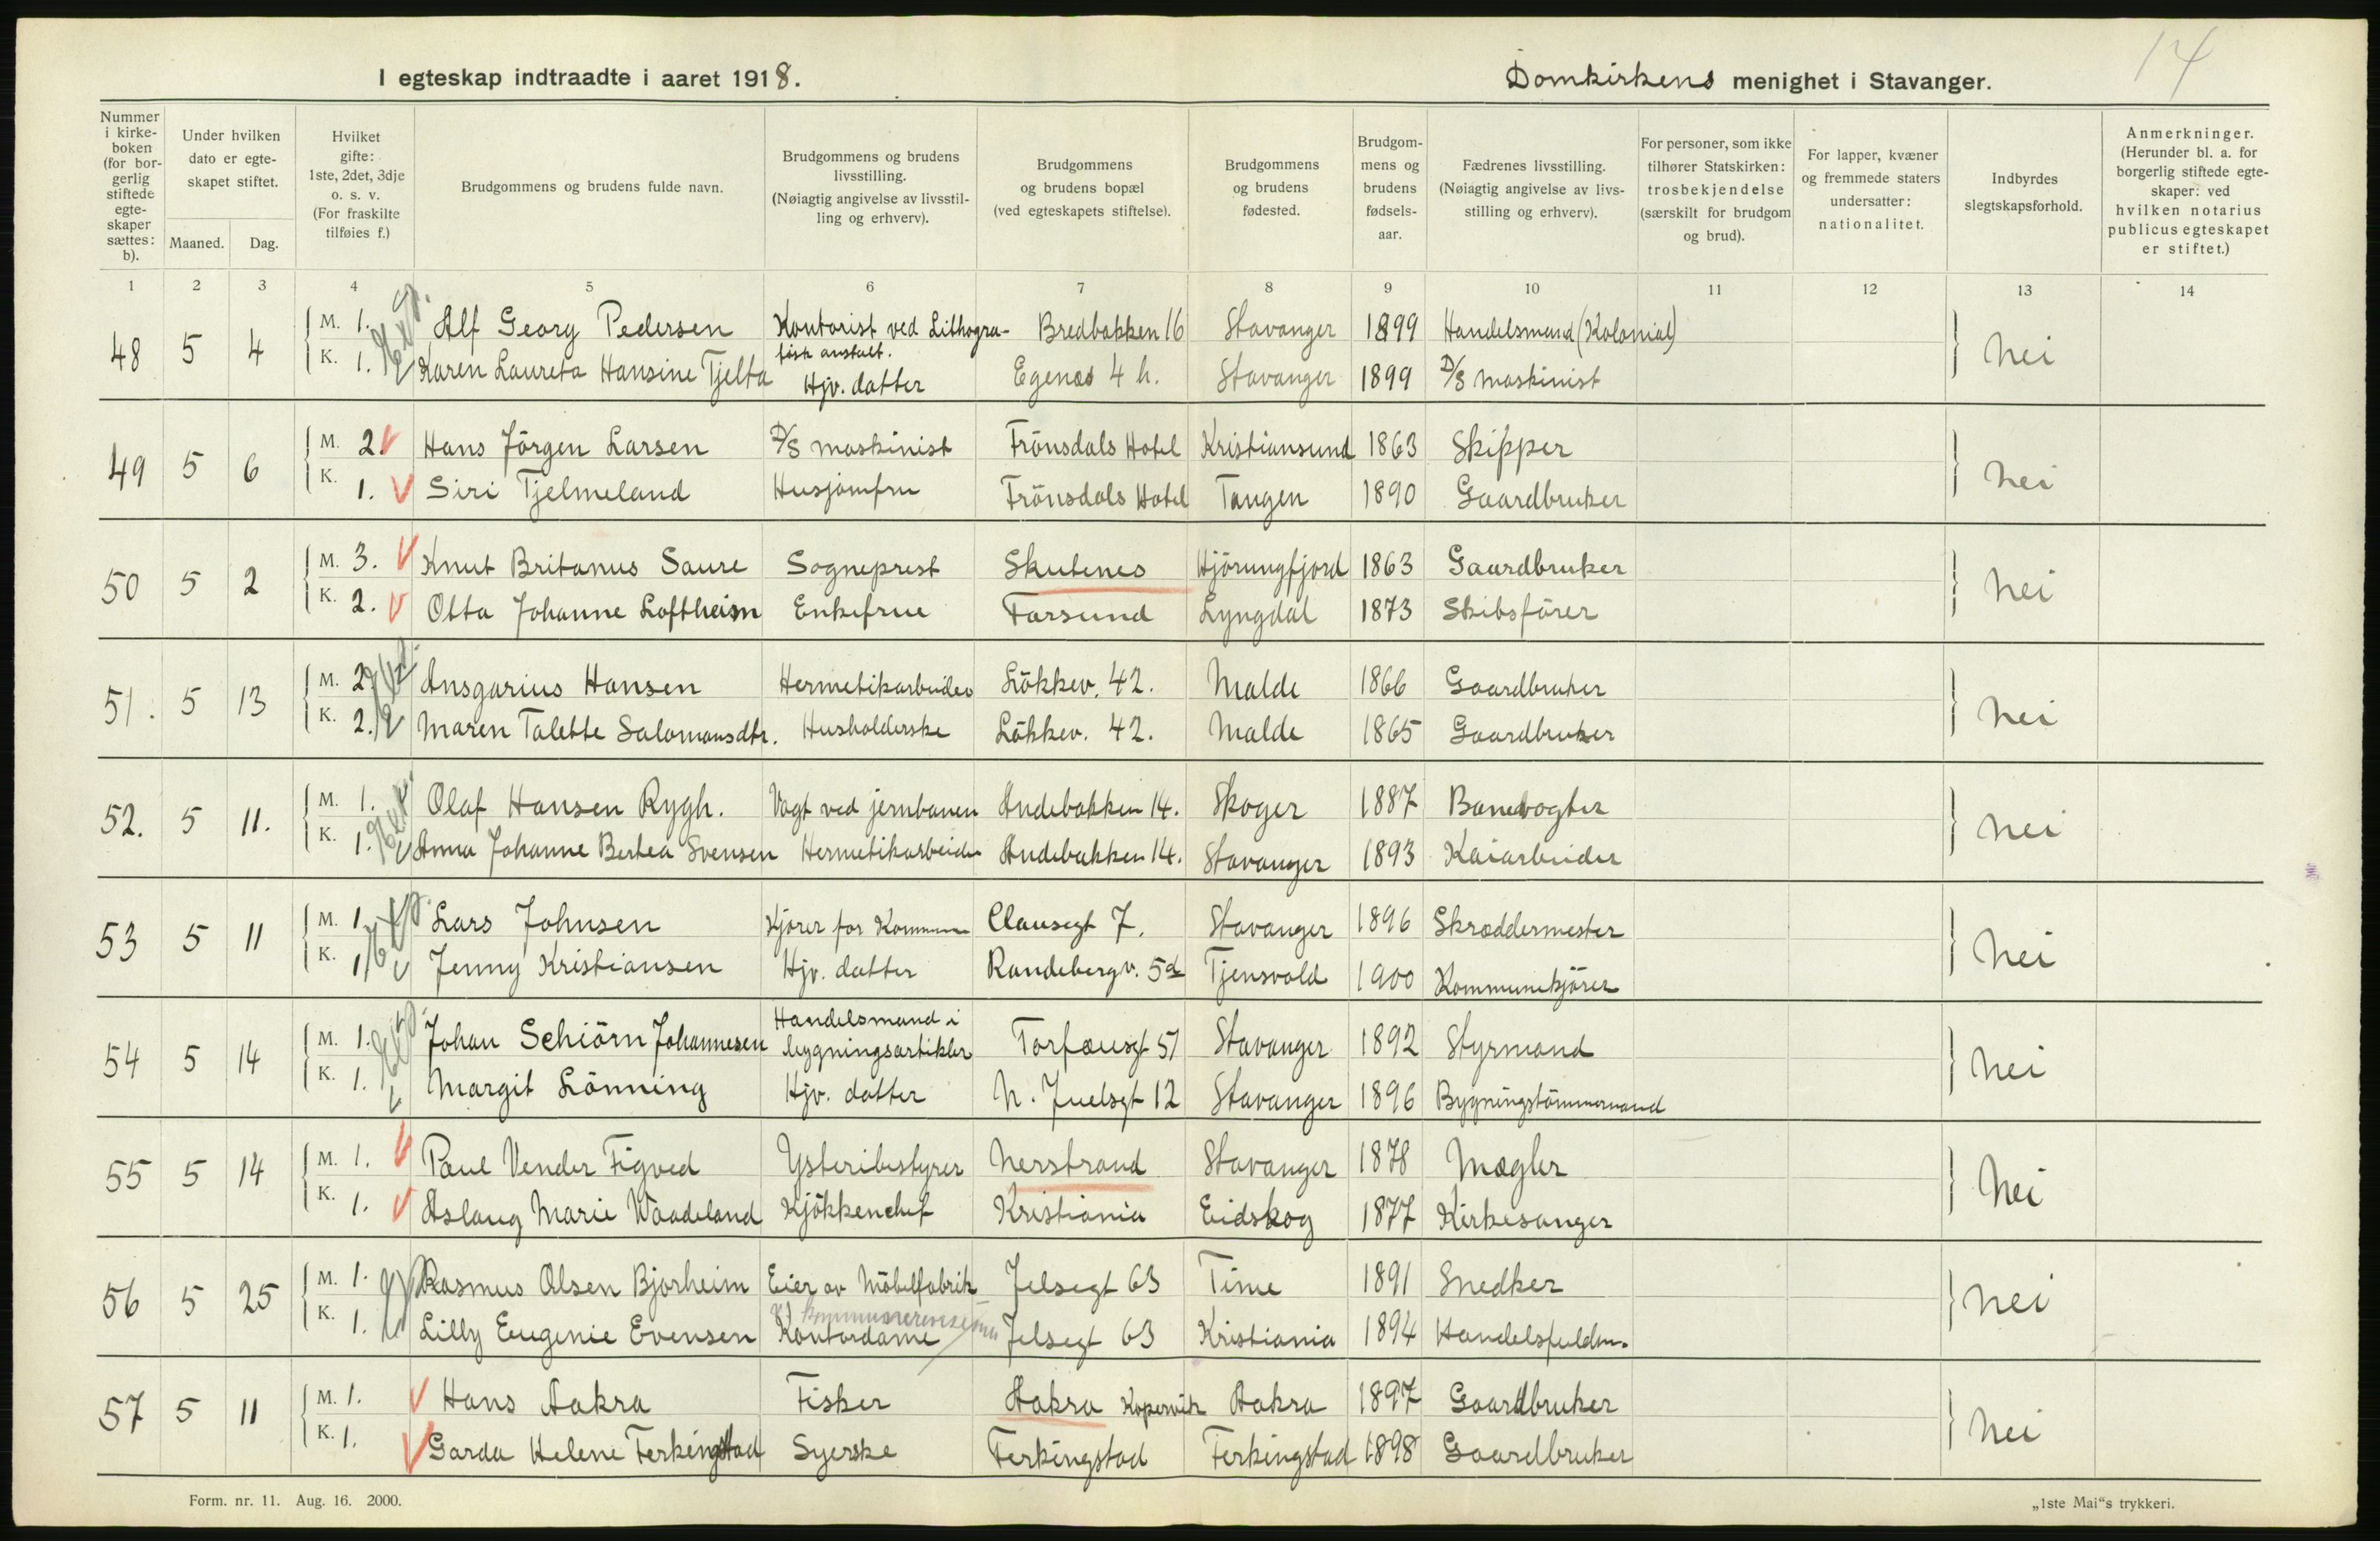 14
I egteskap indtraadte i aaret 1918.
Domkirkens menighet i Stavanger.
Nummer i kirke-boken (for bor-gerlig stiftede egte-skaper sættes: b).
Under hvilken dato er egte-skapet stiftet.
Maaned. Dag.
Hvilket gifte: 1ste, 2det, 3dje o. s. v. (For fraskilte tilføies f.)
Brudgommens og brudens fulde navn.
Brudgommens og brudens livsstilling. (Nøiagtig angivelse av livsstil-ling og erhverv).
Brudgommens og brudens bopæl (ved egteskapets stiftelse).
Brudgommens og brudens fødested.
Brudgom-mens og brudens fødsels-aar.
Fædrenes livsstilling. (Nøiagtig angivelse av livs-stilling og erhverv).
For personer, som ikke tilhører Statskirken: trosbekjendelse (særskilt for brudgom og brud).
For lapper, kvæner og fremmede staters undersatter: nationalitet.
Indbyrdes slegtskapsforhold.
Anmerkninger. (Herunder bl. a. for borgerlig stiftede egte-skaper: ved hvilken notarius publicus egteskapet er stiftet.)
1 2 3 4 5 6 7 8 9 10 11 12 13 14
48 5 4 M. 1. Alf Georg Pedersen Kontorist ved Lithogra-fisk anstalt. Bredbakken 16 Stavanger 1899 Handelsmand (Kolonial) nei
K. 1. Karen Laureta Hansine Tjelta Hjv. datter Egenæs 4 h. Stavanger 1899 D/S maskinist
49 5 6 M. 2 Hans Jörgen Larsen D/S maskinist Frönsdals Hotel Kristiansund 1863 Skipper nei
K. 1. Siri Tjelmeland Husjomfru Frönsdals Hotel Tangen 1890 Gaardbruker
50 5 2 M. 3. Knut Britanus Saure Sogneprest Skutenes Hjörungfjord 1863 Gaardbruker nei
K. 2. Otta Johanne Loftheim Enkefrue Farsund Lyngdal 1873 Skibsförer
51. 5 13 M. 2 Ansgarius Hansen Hermetikarbeider Lökkev. 42. Malde 1866 Gaardbruker nei
K. 2. Maren Talette Salomonsdtr. Husholderske Lökkev. 42. Malde 1865 Gaardbruker
52. 5 11. M. 1. Olaf Hansen Rygh. Vagt ved jernbanen Andebakken 14. Skoger 1887 Banevogter nei
K. 1. Anna Johanne Bertea Svensen Hermetikarbeider Andebakken 14. Stavanger 1893 Kaiarbeider
53 5 11 M. 1. Lars Johnsen Kjörer for Kommunen Clausegt 7. Stavanger 1896 Skræddermester nei
K. 1 Jenny Kristiansen Hjv. datter Randebergv. 5d Tjensvold 1900 Kommunekjörer
54 5 14 M. 1. Johan Schiörn Johannesen Handelsmand i bygningsartikler Torfæusgt 51 Stavanger 1892 Styrmand nei
K. 1. Margit Lönning Hjv. datter N. Juelsgt 12 Stavanger 1896 Bygningstömmermand
55 5 14 M. 1. Paul Vender Figved Ysteribestyrer Nerstrand Stavanger 1878 Mægler nei
K. 1. Aslaug Marie Waadeland Kjökkenchef Kristiania Eidskog 1877 Kirkesanger
56 5 25 M. 1. Rasmus Olsen Bjorheim Eier av Möbelfabrik Jelsegt 63 Time 1891 Snedker nei
K. 1. Lilly Eugenie Evensen Kontordame Jelsegt 63 Kristiania 1894 Handelsfuldm.
57 5 11 M. 1. Hans Aakra Fisker Aakra Kopervik Aakra 1897 Gaardbruker nei
K. 1. Garda Helene Ferkingstad Syerske Ferkingstad Ferkingstad 1898 Gaardbruker
Form. nr. 11. Aug. 16. 2000.
„1ste Mai“s trykkeri.